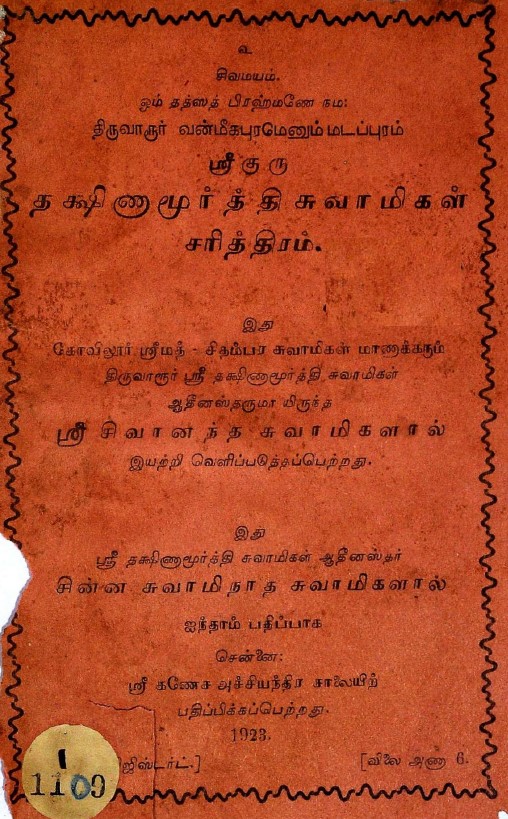 உ
சிவமயம்.
ஓம் தத்ஸத் பிரஹ்மணே நம:
திருவாரூர் வன்மீகபுரமெனும் மடப்புரம்
ஸ்ரீ குரு
தக்ஷிணாமூர்த்தி சுவாமிகள்
சரித்திரம்.
இது
கோவிலூர் ஸ்ரீமத் - சிதம்பர சுவாமிகள் மாணாக்கரும்
திருவாரூர் ஸ்ரீ தக்ஷிணாமூர்த்தி சுவாமிகள்
ஆதீனஸ்தருமா யிருந்த
ஸ்ரீ சிவானந்த சுவாமிகளால்
இயற்றி வெளிப்படுத்தப்பெற்றது.
இது
ஸ்ரீ தக்ஷிணாமூர்த்தி சுவாமிகள் ஆதீனஸ்தர்
சின்ன சுவாமிநாத சுவாமிகளால்
ஐந்தாம் பதிப்பாக
சென்னை:
ஸ்ரீ கணேச அச்சியந்திர சாலையிற்
பதிப்பிக்கப்பெற்றது.
1923.
ஜிஸ்டர்ட்.] [விலை அணா 6.
1
1109